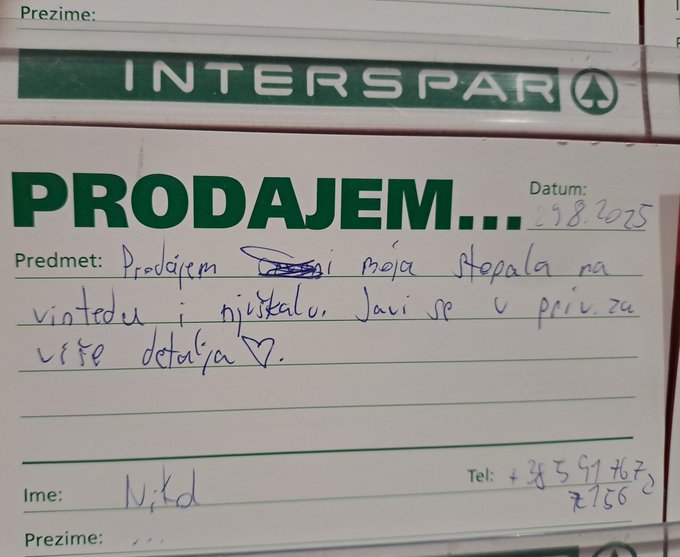 Prezime:
INTERSPAR
PRODAJEM...
Datum:
29.8.2025
Predmet: Prodajem i moja stopala na
vintedu i njuškalu. Javi se u priv. za
više detalja ♡.
Ime:
Tel: +385 91 767
7156
Prezime: ...